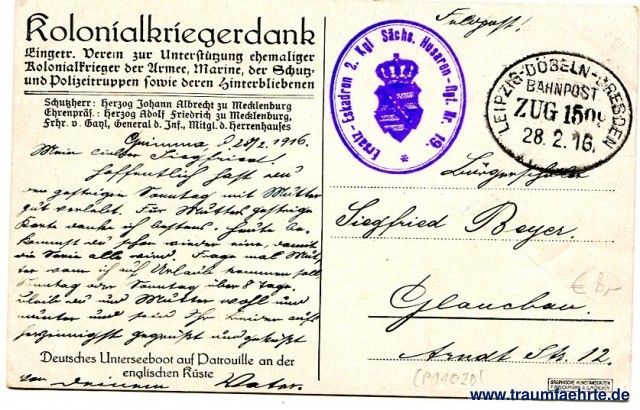 Kolonialkriegerdank
Eingetr. Verein zur Unterstützung ehemaliger
Kolonialkrieger der Armee, Marine, der Schutz-
und Polizeitruppen sowie deren Hinterbliebenen
Schutzherr: Herzog Johann Albrecht zu Mecklenburg
Ehrenpräs.: Herzog Adolf Friedrich zu Mecklenburg,
Frhr. v. Gayl, General d. Inf., Mitgl. d. Herrenhauses
Grimma, d. 28/2. 1916.
Mein lieber Siegfried!
Hoffentlich hast den
gestrigen Sonntag mit Mutter
gut verlebt. Für Mutters gestrige
Karte danke ich bestens. Heute be-
kommst du schon wieder eine, damit
die Serie alle wird. Frage mal Mut-
ter wann ich auf Urlaub kommen soll
Sonntag oder Sonntag über 8 Tage.
Bleibe du und Mutter wohl und
munter und seid Ihr beiden aufs
herzinnigste gegrüßt und geküßt
von deinem Vater.
Deutsches Unterseeboot auf Patrouille an der
englischen Küste
Ersatz-Eskadron 2. Kgl. Sächs. Husaren-Rgt. Nr. 19.
Feldpost!
LEIPZIG-DÖBELN-DRESDEN
BAHNPOST
ZUG 150
28.2.16.
Bürgerschüler
Siegfried Beyer.
Glauchau.
Arndt Str. 12.
€ 8,-
(P11020)
GRAPHISCHE KUNSTANSTALTEN
F. BRUCKMANN A.G. MÜNCHEN
www.traumfaehrte.de